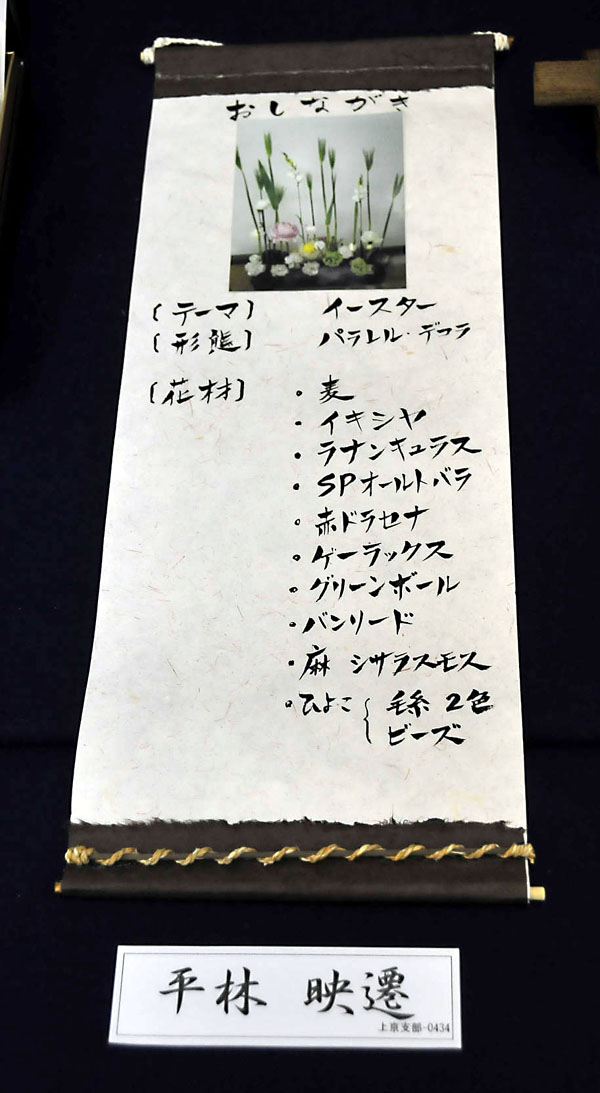 おしながき
〔テーマ〕 イースター
〔形態〕 パラレル・デコラ
〔花材〕 ・麦
・イキシヤ
・ラナンキュラス
・SPオールトバラ
・赤ドラセナ
・ゲーラックス
・グリーンボール
・バンリード
・麻 シサラスモス
・ひよこ { 毛糸 2色
ビーズ
平林 映遷
上京支部-0434